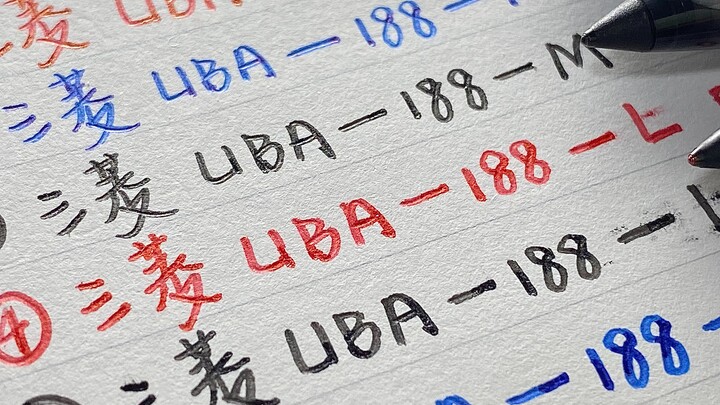 三菱 UBA
三菱 UBA-188-
三菱 UBA-188-M
④ 三菱 UBA-188-L
三菱 UBA-188-
-188-